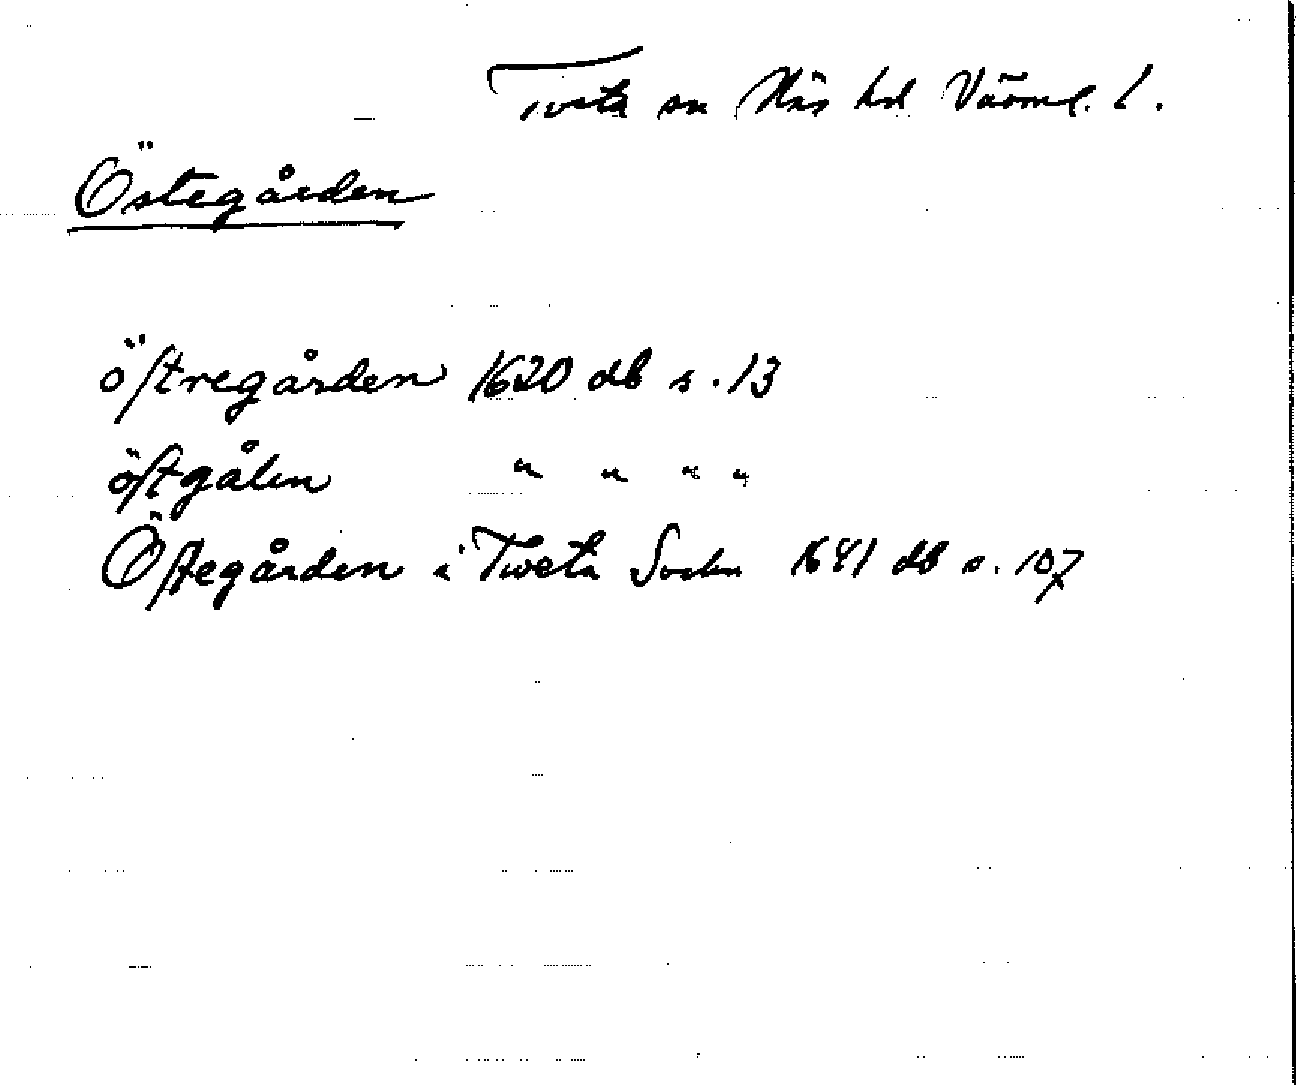 Tveta sn Näs hd Värml. l.
Östegården
öſtregården 1620 db s. 13
öſtgålen " " " "
Öſtegården i Tweta Sochn 1641 db s. 107